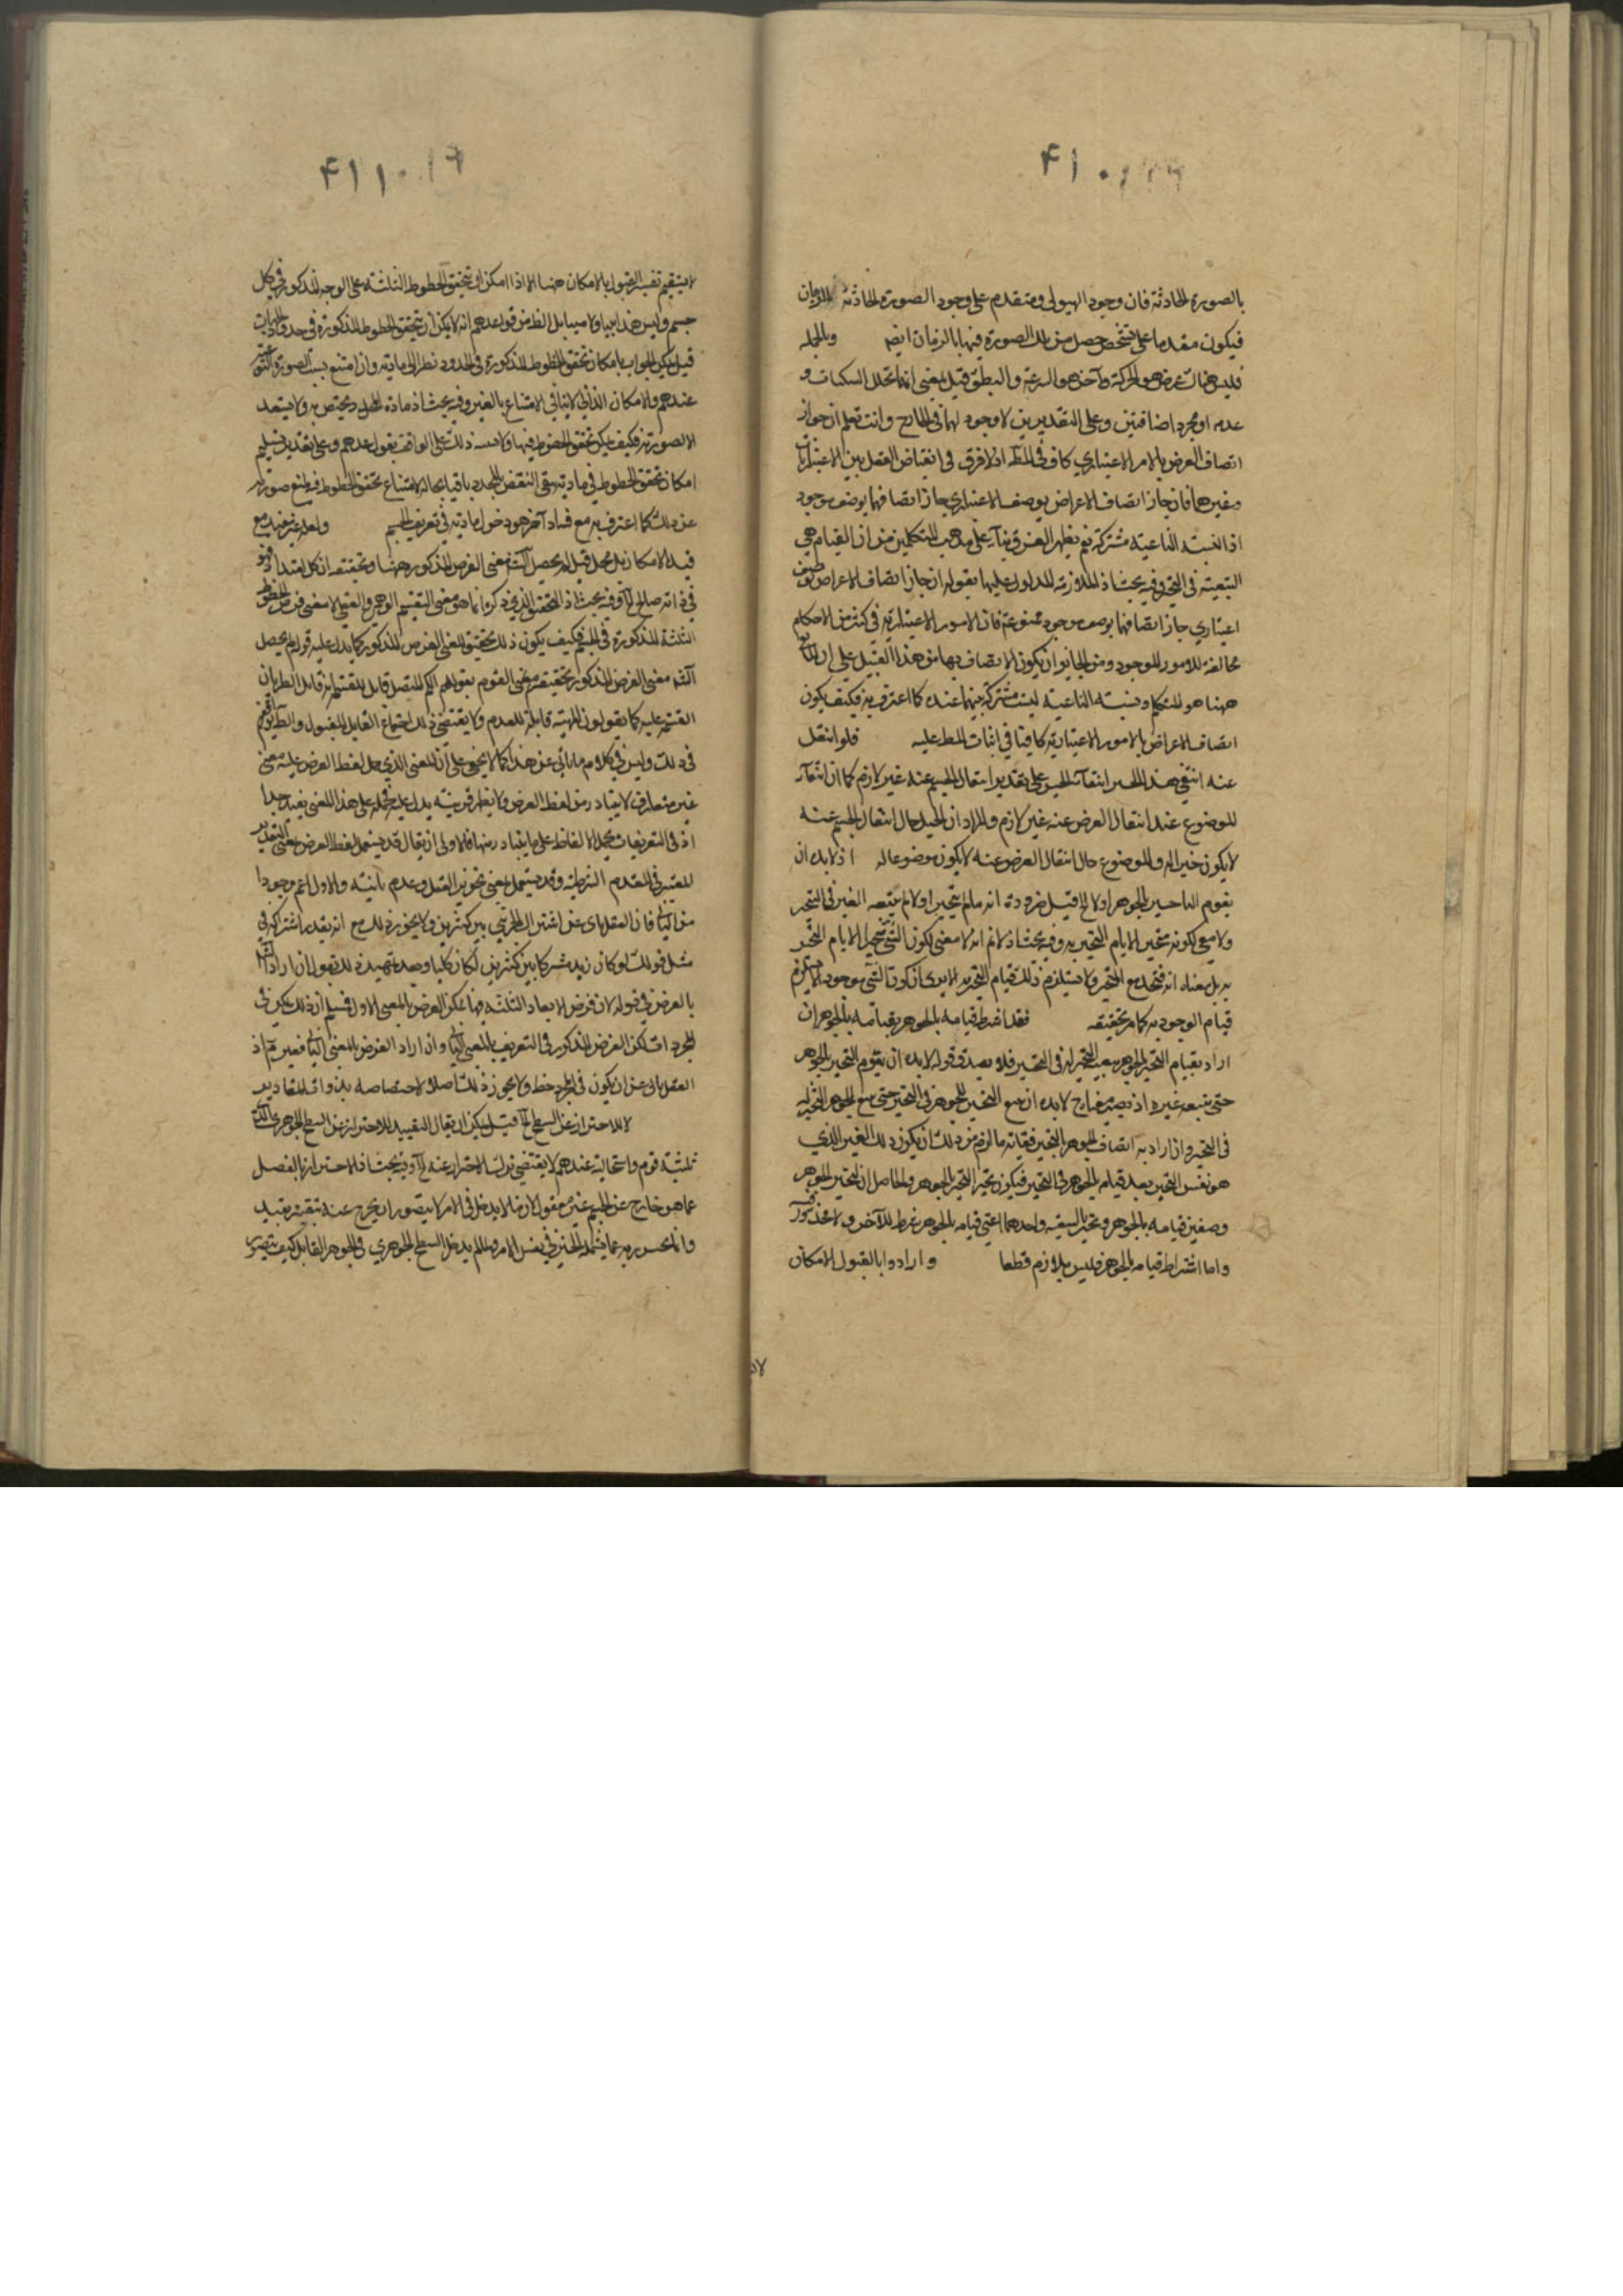 ۴۱۰
بالصورة الحادثة فان وجود الهيولى متقدم على وجود الصورة الحادثة بالزمان
فيكون مقدما على تشخص حصل من تلك الصورة فيها بالزمان ايضه وبالجمله
فليس هناك عرض هو الحركة وآخر هو السرعة والبطؤ قيل يعنى انما تخلل السكنات و
عدمه او مجرد اضافتين وعلى التقديرين لا وجود لهما فى الخارج وانت تعلم ان جواز
اتصاف العرض بالامر الاعتباري كاف فى المط اذ لا فرق فى انقباض العقل بين الاعتباريات
وغيرها فان جاز اتصاف الاعراض بوصف الاعتباري جاز اتصافها بوصف موجود
اذ النسبة الناعتية مشتركة نعم يظهر الفرق بناء على مذهب المتكلمين من ان القيام هي
التبعية فى التحيز وفيه بحث اذ الملازمة المدلول عليها بقوله ان جاز اتصاف الاعراض بوصف
اعتباري جاز اتصافها بوصف موجود ممنوعة فان الامور الاعتبارية فى كثير من الاحكام
مخالفة للامور الموجودة ومن الجايز ان يكون الاتصاف بها من هذا القبيل على ان
ههنا هو المتكلم ونسبة الناعتية ليست مشتركة بينهما عنده كما اعترف به فكيف يكون
اتصاف الاعراض بالامور الاعتبارية كافيا فى اثبات المط عليه فلو انتقل
عنه انتفى هذا الحيز انتفاء الحيز على تقدير انتقال الجسم عنه غير لازم كما ان انتفاء
الموضوع عند انتقال العرض عنه غير لازم والمراد ان الحيز حال انتقال الجسم عنه
لا يكون حيزا له والموضوع حال انتقال العرض عنه لا يكون موضوعا له اذ لا بد ان
يقوم التحيز بالجوهر اولا الخ قيل ضرورة انه ما لم يتحيز اولا لم يتبعه الغير فى التحيز
ولا معنى لكونه متحيزا الا قيام التحيز به وفيه بحث اذ لا نم انه لا معنى لكون الشئ متحيزا الا قيام التحيز
به بل معناه انه متحد مع المتحيز ولا يستلزم ذلك قيام التحيز به الا يرى ان كون الشئ موجودا لا يلزم
قيام الوجود به كما مر تحقيقه فقد اشترط قيامه بالجوهر بقيامه بالجوهر ان
اراد بقيام التحيز بالجوهر تبعية التحيز له فى التحيز فلا يصدق قوله لا بد ان يقوم التحيز بالجوهر
حتى يتبعه غيره اذ يصير لا بد ان يتبع التحيز الجوهر فى التحيز حتى يتبع الجوهر التحيز له
فى التحيز وان اراد به اتصاف الجوهر بالتحيز فغاية ما لزم من ذلك ان يكون ذلك الغير الذي
هو نفس التحيز بعد قيام الجوهر فى التحيز فيكون تحيز التحيز بالجوهر والحاصل ان للتحيز الجوهر
وصفين قيامه بالجوهر وتحيزه بالتبعية واحدهما اعنى قيامه بالجوهر شرط للآخر ولا محذور
واما اشتراط قيامه بالجوهر فليس بلازم قطعا وارادوا بالقبول الامكان
۴۱۱
لا يستقيم تفسير القبول بالامكان ههنا الا اذا امكن ان يتحقق الخطوط الثلثة على الوجه المذكور فى كل
جسم وليس هذا بينا ولا مبينا بل الظ من قواعدهم انه لا يمكن ان يتحقق الخطوط المذكورة فى
قيل يمكن الجواب بامكان تحقق الخطوط المذكورة فى المحدود نظرا الى مادته وان امتنع بسبب الصورة
عندهم والامكان الذاتى لا ينافى الامتناع بالغير وفيه بحث اذ مادة الفلك يختص به ولا يستعد
الا لصورته فكيف يمكن تحقق الخطوط فيها ذلك على الواقف بقواعدهم وعلى تقدير تسليم
امكان تحقق الخطوط فى مادته يبقى النقض بالمحدد باقيا بحاله لامتناع تحقق الخطوط صورته
عن ذلك كما اعترف به مع فساد آخر هو دخول مادته فى تعريف الجسم
قيد الامكان بل محمل قيل لم يحصل معنى الفرض المذكور ههنا وتحقيقه ان كل امتداد فهو
فى ذاته صالح الخ وفيه بحث اذ التحقيق الذي ذكره انما هو معنى التقسيم الوهمي والعقلي لا معنى فرض الخطوط
الثلثة المذكورة فى الجسم فكيف يكون ذلك تحقيق المعنى الفرض المذكور كما يدل عليه قوله لم يحصل
معنى الفرض المذكور تحقيقه معنى القوم بقولهم الكم المتصل قابل للقسمة انه قابل لطريان
القسمة عليه كما يقولون الماهية قابلة للعدم ولا يقتضى ذلك اجتماع القابل للقبول
فى ذلك وليس فى كلامه ما يأبى عن هذا كما لا يخفى على ان المعنى الذي حمل لفظ الفرض عليه معنى
غير متعارف لا يتبادر من لفظ العرض ولا يظهر قرينة يدل عليه فحمله على هذا المعنى بعيد جدا
اذ فى التعريفات يحمل الالفاظ على ما يتبادر منها فالاولى ان يقال قد يستعمل لفظ الفرض بمعنى التقدير
المعتبر فى المقدم الشرطية وقد يستعمل بمعنى تجويز العقل وعدم والاول اعم وجودا
من الثانى فان العقل يابى عن اشتراك الجزئى بين كثيرين ولا يجوز ذلك مع انه يقدر اشتراكه فى
مثل قولك لو كان زيد مشتركا بين كثيرين لكان كليا وبعد تمهيد ذلك نقول ان اراد
بالفرض فى قوله لان فرض الابعاد الثلثة فيها ممكن الفرض بالمعنى الاول فمسلم ان ذلك ممكن فى
المجردات لكن الفرض المذكور فى التعريف بالمعنى الثانى وان اراد الفرض بالمعنى الثانى فغير مم اذ
العقل يابى عن ان يكون فى المجرد خط ولا يجوز ذلك اصلا لاختصاصه بذوات المقادير
لا للاحتراز عن السطح الخ قيل يمكن ان يقال التقييد للاحتراز عن السطح الجوهري
قوم واستحالته عندهم لا يقتضى ترك الاحتراز عنه الخ وفيه بحث اذ الاحتراز بالفصل
عما هو خارج عن الجنس غير معقول لان ما لا يدخل فى الامر لا يتصور ان يخرج عنه بتقييده بقيد
وانما يحترز به عما يشمله الجنس فى نفس الامر ولما لم يدخل السطح الجوهري فى الجوهر القابل كيف يتصور